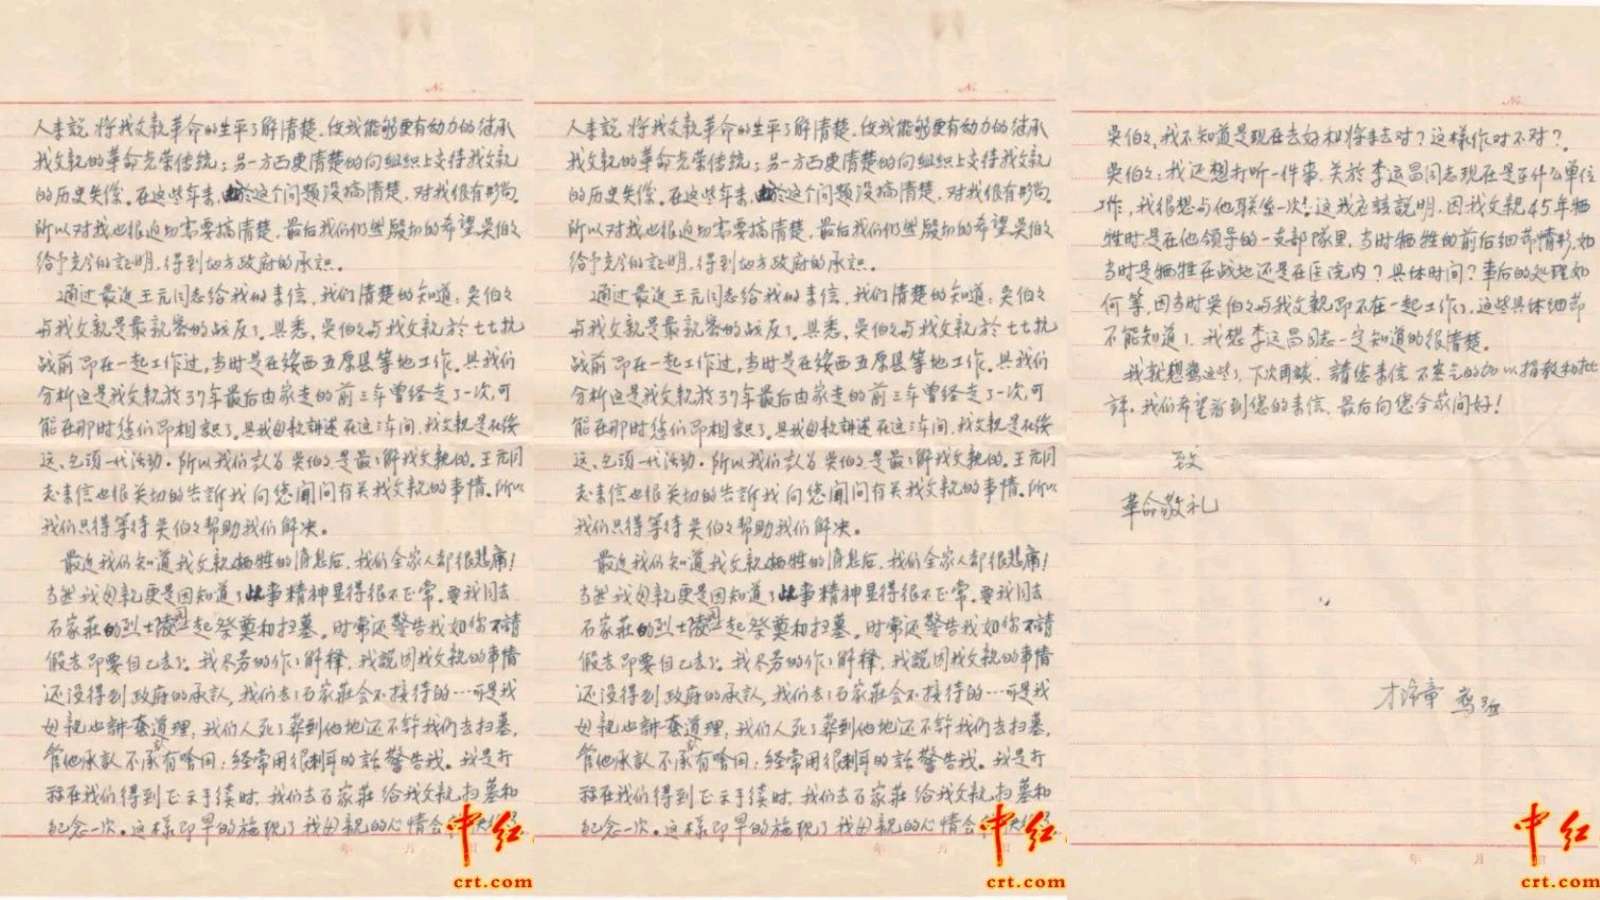 人来说，将我父亲革命的生平了解清楚，使我能够更有动力的继承
我父亲的革命光荣传统；另一方面更清楚的向组织上交待我父亲
的历史。在这些年来，由於这个问题没搞清楚，对我很有影响。
所以对我也很迫切需要搞清楚，最后我们仍然殷切的希望吴伯伯
给予充分的证明，得到地方政府的承认。
通过最近王元同志给我的来信，我们清楚的知道：吴伯伯
与我父亲是最亲密的战友了。具悉，吴伯伯与我父亲於七七抗
战前即在一起工作过，当时是在绥西五原县等地工作。具我们
分析这是我父亲於37年最后由家走的前三年曾经走了一次，可
能在那时您们即相识了。具我母亲讲述在这三年间，我父亲是在绥
远、包头一代活动。所以我们认为吴伯伯是最了解我父亲的。王元同
志来信也很关切的告訴我向您闻问有关我父亲的事情。所以
我们只得等待吴伯伯帮助我们解决。
最近我们知道我父亲牺牲的消息后，我们全家人都很悲痛！
当然我母亲更是因知道了此事精神显得很不正常。要我同去
石家莊的烈士陵园一起祭奠和扫墓。时常还警告我如你不請
假去即要自己去了。我尽劳的作了解释，我説因我父亲的事情
还没得到政府的承认，我们去了石家莊会不接待的…可是我
母亲也讲一套道理，我们人死了葬到他地还不许我们去扫墓，
管他承认不承认有啥问；经常用很刺耳的話警告我。我是打
称在我们得到正式手续时，我们去石家莊给我父亲扫墓和
纪念一次。这样即早的施现了我母亲的心情会
中红
crt.com
人来说，将我父亲革命的生平了解清楚，使我能够更有动力的继承
我父亲的革命光荣传统；另一方面更清楚的向组织上交待我父亲
的历史。在这些年来，由於这个问题没搞清楚，对我很有影响。
所以对我也很迫切需要搞清楚，最后我们仍然殷切的希望吴伯伯
给予充分的证明，得到地方政府的承认。
通过最近王元同志给我的来信，我们清楚的知道：吴伯伯
与我父亲是最亲密的战友了。具悉，吴伯伯与我父亲於七七抗
战前即在一起工作过，当时是在绥西五原县等地工作。具我们
分析这是我父亲於37年最后由家走的前三年曾经走了一次，可
能在那时您们即相识了。具我母亲讲述在这三年间，我父亲是在绥
远、包头一代活动。所以我们认为吴伯伯是最了解我父亲的。王元同
志来信也很关切的告訴我向您闻问有关我父亲的事情。所以
我们只得等待吴伯伯帮助我们解决。
最近我们知道我父亲牺牲的消息后，我们全家人都很悲痛！
当然我母亲更是因知道了此事精神显得很不正常。要我同去
石家莊的烈士陵园一起祭奠和扫墓。时常还警告我如你不請
假去即要自己去了。我尽劳的作了解释，我説因我父亲的事情
还没得到政府的承认，我们去了石家莊会不接待的…可是我
母亲也讲一套道理，我们人死了葬到他地还不许我们去扫墓，
管他承认不承认有啥问；经常用很刺耳的話警告我。我是打
称在我们得到正式手续时，我们去石家莊给我父亲扫墓和
纪念一次。这样即早的施现了我母亲的心情会
中红
crt.com
吴伯伯，我不知道是现在去好和将来去对？这样作对不对？
吴伯伯：我还想打听一件事，关於李运昌同志现在是在什么单位
工作，我很想与他联系一次！这我应该説明，因我父亲45年牺
牲时是在他领导的一支部队里，当时牺牲的前后细节情形，如
当时是牺牲在战地还是在医院内？具体时间？事后的处理如
何等，因当时吴伯伯与我父亲即不在一起工作了，这些具体细节
不能知道了，我想李运昌同志一定知道的很清楚。
我就想写这些了，下次再谈，請您来信不客气的加以指教和批
评，我们希望看到您的来信，最后向您全家问好！
致
革命敬礼
才缔章
中红
crt.com